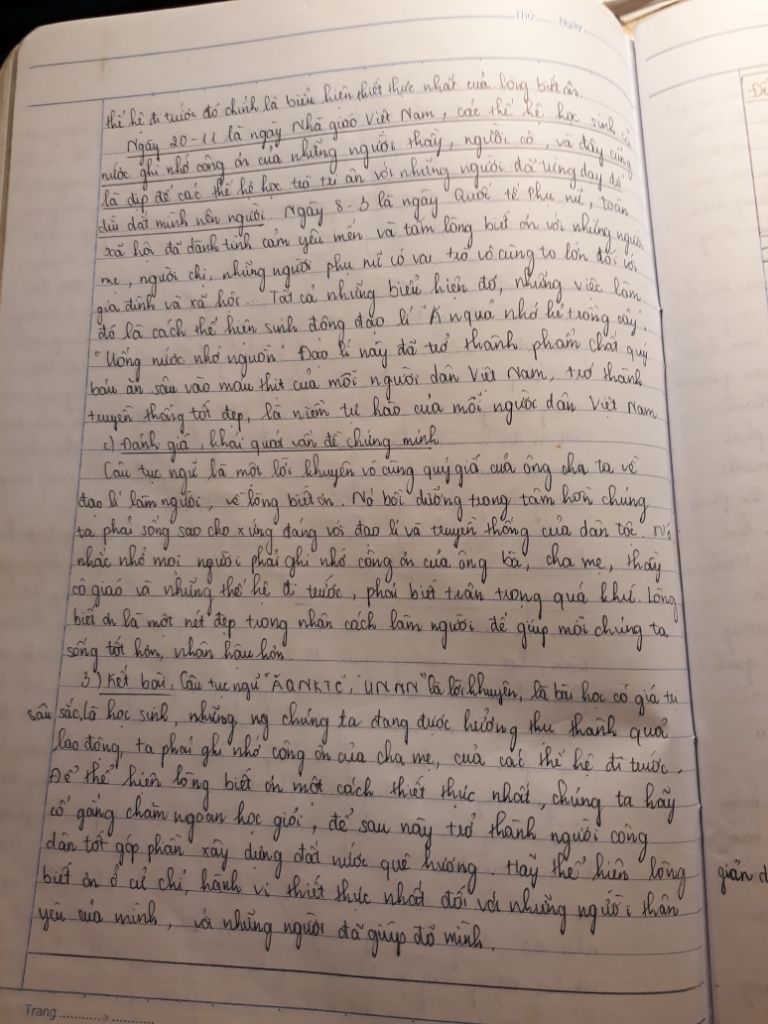 Thứ....... Ngày.......
thế hệ đi trước đó chính là biểu hiện thiết thực nhất của lòng biết ơn.
Ngày 20-11 là ngày Nhà giáo Việt Nam, các thế hệ học sinh cả
nước ghi nhớ công ơn của những người thầy, người cô, và đây cũng
là dịp để các thế hệ học trò tri ân với những người đã từng dạy dỗ
dìu dắt mình nên người. Ngày 8-3 là ngày Quốc tế phụ nữ, toàn
xã hội đã dành tình cảm yêu mến và tấm lòng biết ơn với những người
mẹ, người chị, những người phụ nữ có vai trò vô cùng to lớn đối với
gia đình và xã hội... Tất cả những biểu hiện đó, những việc làm
đó là cách thể hiện sinh động đạo lí "Ăn quả nhớ kẻ trồng cây",
"Uống nước nhớ nguồn". Đạo lí này đã trở thành phẩm chất quý
báu ăn sâu vào máu thịt của mỗi người dân Việt Nam, trở thành
truyền thống tốt đẹp, là niềm tự hào của mỗi người dân Việt Nam
c) Đánh giá, khái quát vấn đề chứng minh
Câu tục ngữ là một lời khuyên vô cùng quý giá của ông cha ta về
đạo lí làm người, về lòng biết ơn. Nó bồi dưỡng trong tâm hồn chúng
ta phải sống sao cho xứng đáng với đạo lí và truyền thống của dân tộc. Nó
nhắc nhở mọi người phải ghi nhớ công ơn của ông bà, cha mẹ, thầy
cô giáo và những thế hệ đi trước, phải biết trân trọng quá khứ. Lòng
biết ơn là một nét đẹp trong nhân cách làm người để giúp mỗi chúng ta
sống tốt hơn, nhân hậu hơn
3) Kết bài. Câu tục ngữ "ĂQNKTC", "UNNN" là lời khuyên, là bài học có giá trị
sâu sắc, là học sinh, những ng chúng ta đang được hưởng thụ thành quả
lao động, ta phải ghi nhớ công ơn của cha mẹ, của các thế hệ đi trước.
Để thể hiện lòng biết ơn một cách thiết thực nhất, chúng ta hãy
cố gắng chăm ngoan học giỏi, để sau này trở thành người công
dân tốt góp phần xây dựng đất nước quê hương. Hãy thể hiện lòng
biết ơn ở cử chỉ, hành vi thiết thực nhất đối với những người thân
yêu của mình, với những người đã giúp đỡ mình.
Trang...........
giản d